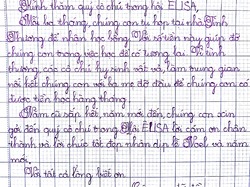 Kính thăm quý cô chú trong hội ELISA,
Mỗi ba tháng, chúng con tụ họp tại nhà Tình
Thương để nhận học bổng. Với số tiền này giúp đỡ
chúng con trong việc học để có tương lai. Tr
thường, các cô chú hy sinh vất vả, làm trung gian
nối kết chúng con với ba mẹ đỡ đầu để chúng con có
được tiền học hàng tháng.
Năm cũ sắp hết, năm mới đến, chúng con xin
gởi đến quý cô chú trong Hội ELISA lời cám ơn chân
thành và lời chúc tốt đẹp nhân dịp lễ Noel và năm
mới.
Với tất cả lòng biết ơn